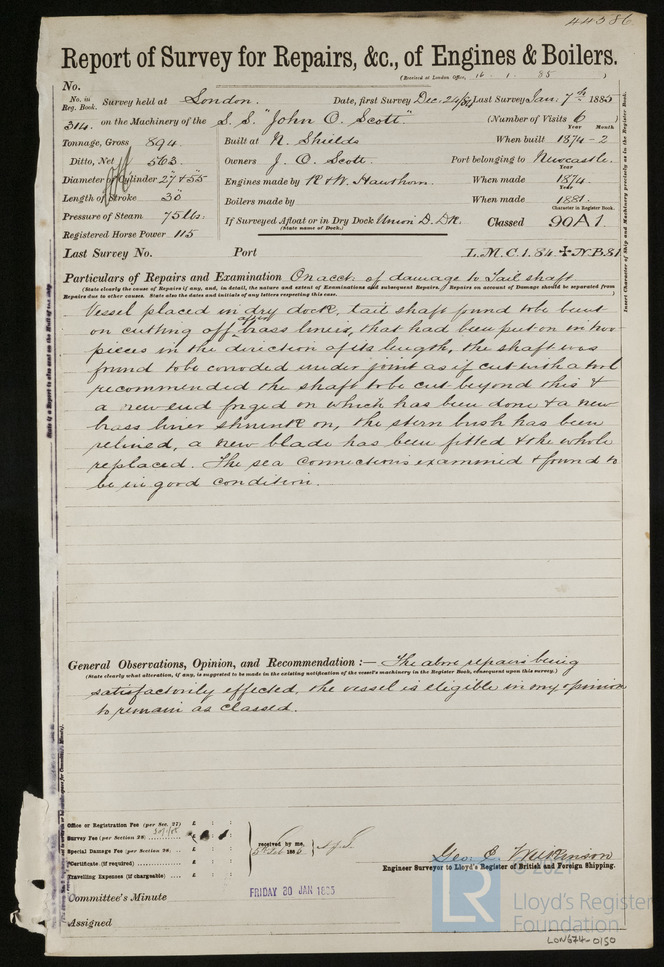 44386
Report of Survey for Repairs, &c., of Engines & Boilers.
(Received at London Office, 16. 1. 85 )
No.
No. in Reg. Book. Survey held at London. Date, first Survey Dec. 24/84 Last Survey Jan: 7th 1885
314. on the Machinery of the S. S. "John O. Scott" (Number of Visits 6 )
Tonnage, Gross 894 Built at N. Shields When built 1874 - 2 Year Month
Ditto, Net 563 Owners J. O. Scott. Port belonging to Newcastle.
Diameter of Cylinder 27 + 55 Engines made by R & W. Hawthorn. When made 1874 Year
Length of Stroke 30 Boilers made by When made 1881 Year
Pressure of Steam 75 lbs. If Surveyed Afloat or in Dry Dock Union D. Dk. Classed 90A1 Character in Register Book.
(State name of Dock.)
Registered Horse Power 115
Last Survey No. Port L.M.C. 1. 84 N.B. 81
Particulars of Repairs and Examination On acct: of damage to Tail shaft
(State clearly the cause of Repairs if any, and, in detail, the nature and extent of Examinations and subsequent Repairs. Repairs on account of Damage should be separated from
Repairs due to other causes. State also the dates and initials of any letters respecting this case. )
Vessel placed in dry dock, tail shaft found to be bent
on cutting off after brass liners, that had been put on in two
pieces in the direction of its length, the shaft was
found to be corroded under joint as if cut with a tool
recommended the shaft to be cut beyond this &
a new end forged on which has been done & a new
brass liner shrunk on, the stern bush has been
relined, a new blade has been fitted & the whole
replaced. The sea connections examined & found to
be in good condition.
General Observations, Opinion, and Recommendation :— The above repairs being
(State clearly what alteration, if any, is suggested to be made in the existing notification of the vessel's machinery in the Register Book, consequent upon this survey.)
satisfactorily effected, the vessel is eligible in my opinion
to remain as classed.
Office or Registration Fee (per Sec. 27) £ : :
Survey Fee (per Section 28) £ : :
Special Damage Fee (per Section 28) £ : :
Certificate (if required) £ : :
Travelling Expenses (if chargeable) £ : :
received by me,
Engineer Surveyor to Lloyd's Register of British and Foreign Shipping.
Committee's Minute FRIDAY 30 JAN 1885
Assigned
Insert Character of Ship and Machinery precisely as in the Register Book.
© 2021
LR
Lloyd's Register
Foundation
LON674-0150